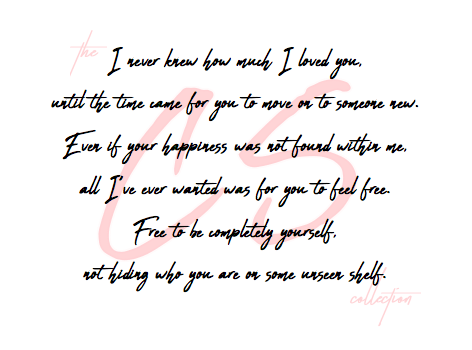 the
I never knew how much I loved you,
until the time came for you to move on to someone new.
Even if your happiness was not found within me,
all I've ever wanted was for you to feel free.
Free to be completely yourself,
not hiding who you are on some unseen shelf.
CS
collection